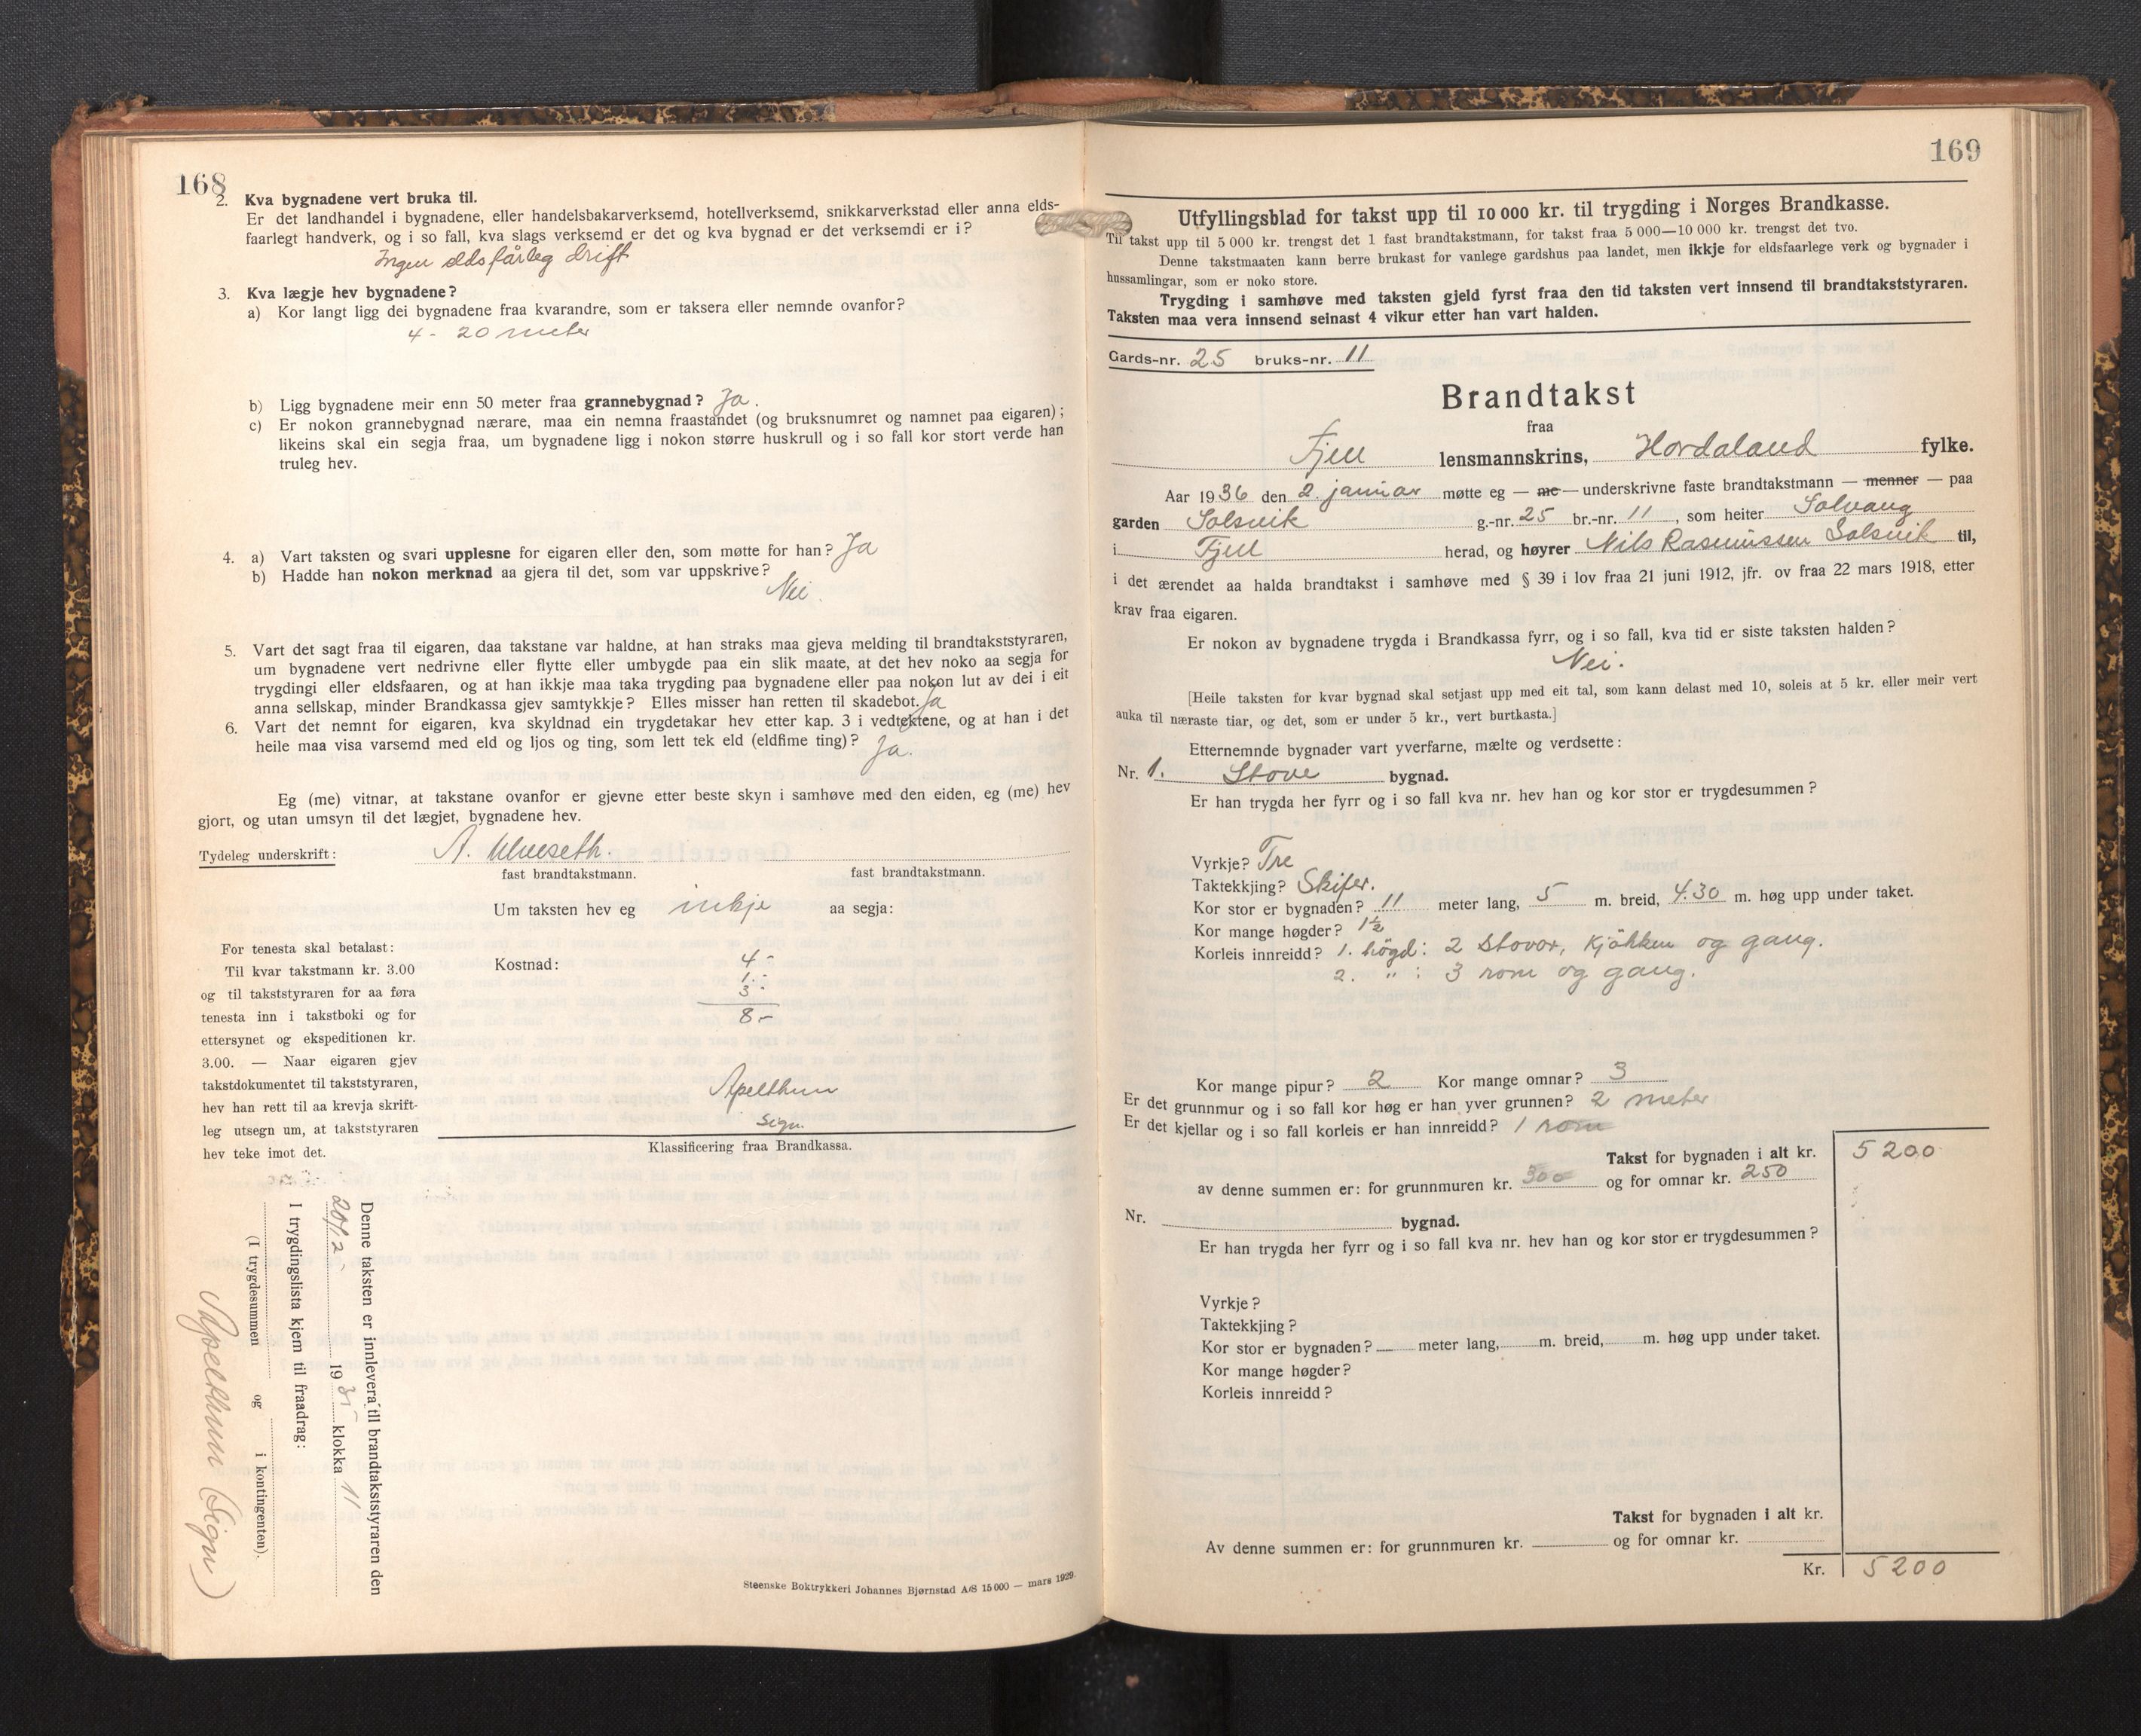 168
2. Kva bygnadene vert bruka til.
Er det landhandel i bygnadene, eller handelsbakarverksemd, hotellverksemd, snikkarverkstad eller anna elds-
faarlegt handverk, og i so fall, kva slags verksemd er det og kva bygnad er det verksemdi er i?
Ingen eldsfårleg drift
3. Kva lægje hev bygnadene?
a) Kor langt ligg dei bygnadene fraa kvarandre, som er taksera eller nemnde ovanfor?
4 - 20 meter
b) Ligg bygnadene meir enn 50 meter fraa grannebygnad? Ja.
c) Er nokon grannebygnad nærare, maa ein nemna fraastandet (og bruksnumret og namnet paa eigaren);
likeins skal ein segja fraa, um bygnadene ligg i nokon større huskrull og i so fall kor stort verde han
truleg hev.
4. a) Vart taksten og svari upplesne for eigaren eller den, som møtte for han? Ja
b) Hadde han nokon merknad aa gjera til det, som var uppskrive?
Nei.
5. Vart det sagt fraa til eigaren, daa takstane var haldne, at han straks maa gjeva melding til brandtakststyraren,
um bygnadene vert nedrivne eller flytte eller umbygde paa ein slik maate, at det hev noko aa segja for
trygdingi eller eldsfaaren, og at han ikkje maa taka trygding paa bygnadene eller paa nokon lut av dei i eit
anna sellskap, minder Brandkassa gjev samtykkje? Elles misser han retten til skadebot. Ja
6. Vart det nemnt for eigaren, kva skyldnad ein trygdetakar hev etter kap. 3 i vedtektene, og at han i det
heile maa visa varsemd med eld og ljos og ting, som lett tek eld (eldfime ting)? Ja.
Eg (me) vitnar, at takstane ovanfor er gjevne etter beste skyn i samhøve med den eiden, eg (me) hev
gjort, og utan umsyn til det lægjet, bygnadene hev.
Tydeleg underskrift: A. Ulveseth.
fast brandtakstmann. fast brandtakstmann.
Um taksten hev eg inkje aa segja:
For tenesta skal betalast:
Til kvar takstmann kr. 3.00
og til takststyraren for aa føra
tenesta inn i takstboki og for
ettersynet og ekspeditionen kr.
3.00. — Naar eigaren gjev
takstdokumentet til takststyraren,
hev han rett til aa krevja skrift-
leg utsegn um, at takststyraren
hev teke imot det.
Kostnad: 4 -
1.-
3 -
8 -
Apelthun
sign.
Klassificering fraa Brandkassa.
Denne taksten er innlevera til brandtakststyraren den
20/2 - 1935 klokka 11
I trygdingslista kjem til fraadrag:
(I trygdesummen og i kontingenten).
Apelthun (sign)
Steenske Boktrykkeri Johannes Bjørnstad A/S 15 000 — mars 1929.
169
Utfyllingsblad for takst upp til 10 000 kr. til trygding i Norges Brandkasse.
Til takst upp til 5 000 kr. trengst det 1 fast brandtakstmann, for takst fraa 5 000—10 000 kr. trengst det tvo.
Denne takstmaaten kann berre brukast for vanlege gardshus paa landet, men ikkje for eldsfaarlege verk og bygnader i
hussamlingar, som er noko store.
Trygding i samhøve med taksten gjeld fyrst fraa den tid taksten vert innsend til brandtakststyraren.
Taksten maa vera innsend seinast 4 vikur etter han vart halden.
Gards-nr. 25 bruks-nr. 11
Brandtakst
fraa
Fjell lensmannskrins, Hordaland fylke.
Aar 1936 den 2. januar møtte eg — me — underskrivne faste brandtakstmann — menner — paa
garden Solsvik g.-nr. 25 br.-nr. 11, som heiter Solvang
i Fjell herad, og høyrer Nils Rasmussen Solsvik til,
i det ærendet aa halda brandtakst i samhøve med § 39 i lov fraa 21 juni 1912, jfr. ov fraa 22 mars 1918, etter
krav fraa eigaren.
Er nokon av bygnadene trygda i Brandkassa fyrr, og i so fall, kva tid er siste taksten halden?
Nei.
[Heile taksten for kvar bygnad skal setjast upp med eit tal, som kann delast med 10, soleis at 5 kr. eller meir vert
auka til næraste tiar, og det, som er under 5 kr., vert burtkasta.]
Etternemnde bygnader vart yverfarne, mælte og verdsette:
Nr. 1. Stove bygnad.
Er han trygda her fyrr og i so fall kva nr. hev han og kor stor er trygdesummen?
Vyrkje? Tre
Taktekkjing? Skifer.
Kor stor er bygnaden? 11 meter lang, 5 m. breid, 4.30 m. høg upp under taket.
Kor mange høgder? 1½
Korleis innreidd? 1. högd: 2 stovor, kjökken og gang.
2. " : 3 rom og gang.
Kor mange pipur? 2 Kor mange omnar? 3
Er det grunnmur og i so fall kor høg er han yver grunnen? 2 meter
Er det kjellar og i so fall korleis er han innreidd? 1 rom
Takst for bygnaden i alt kr. 5200
av denne summen er: for grunnmuren kr. 300 og for omnar kr. 250
Nr. bygnad.
Er han trygda her fyrr og i so fall kva nr. hev han og kor stor er trygdesummen?
Vyrkje?
Taktekkjing?
Kor stor er bygnaden? meter lang, m. breid, m. høg upp under taket.
Kor mange høgder?
Korleis innreidd?
Takst for bygnaden i alt kr.
Av denne summen er: for grunnmuren kr. og for omnar kr.
Kr. 5200